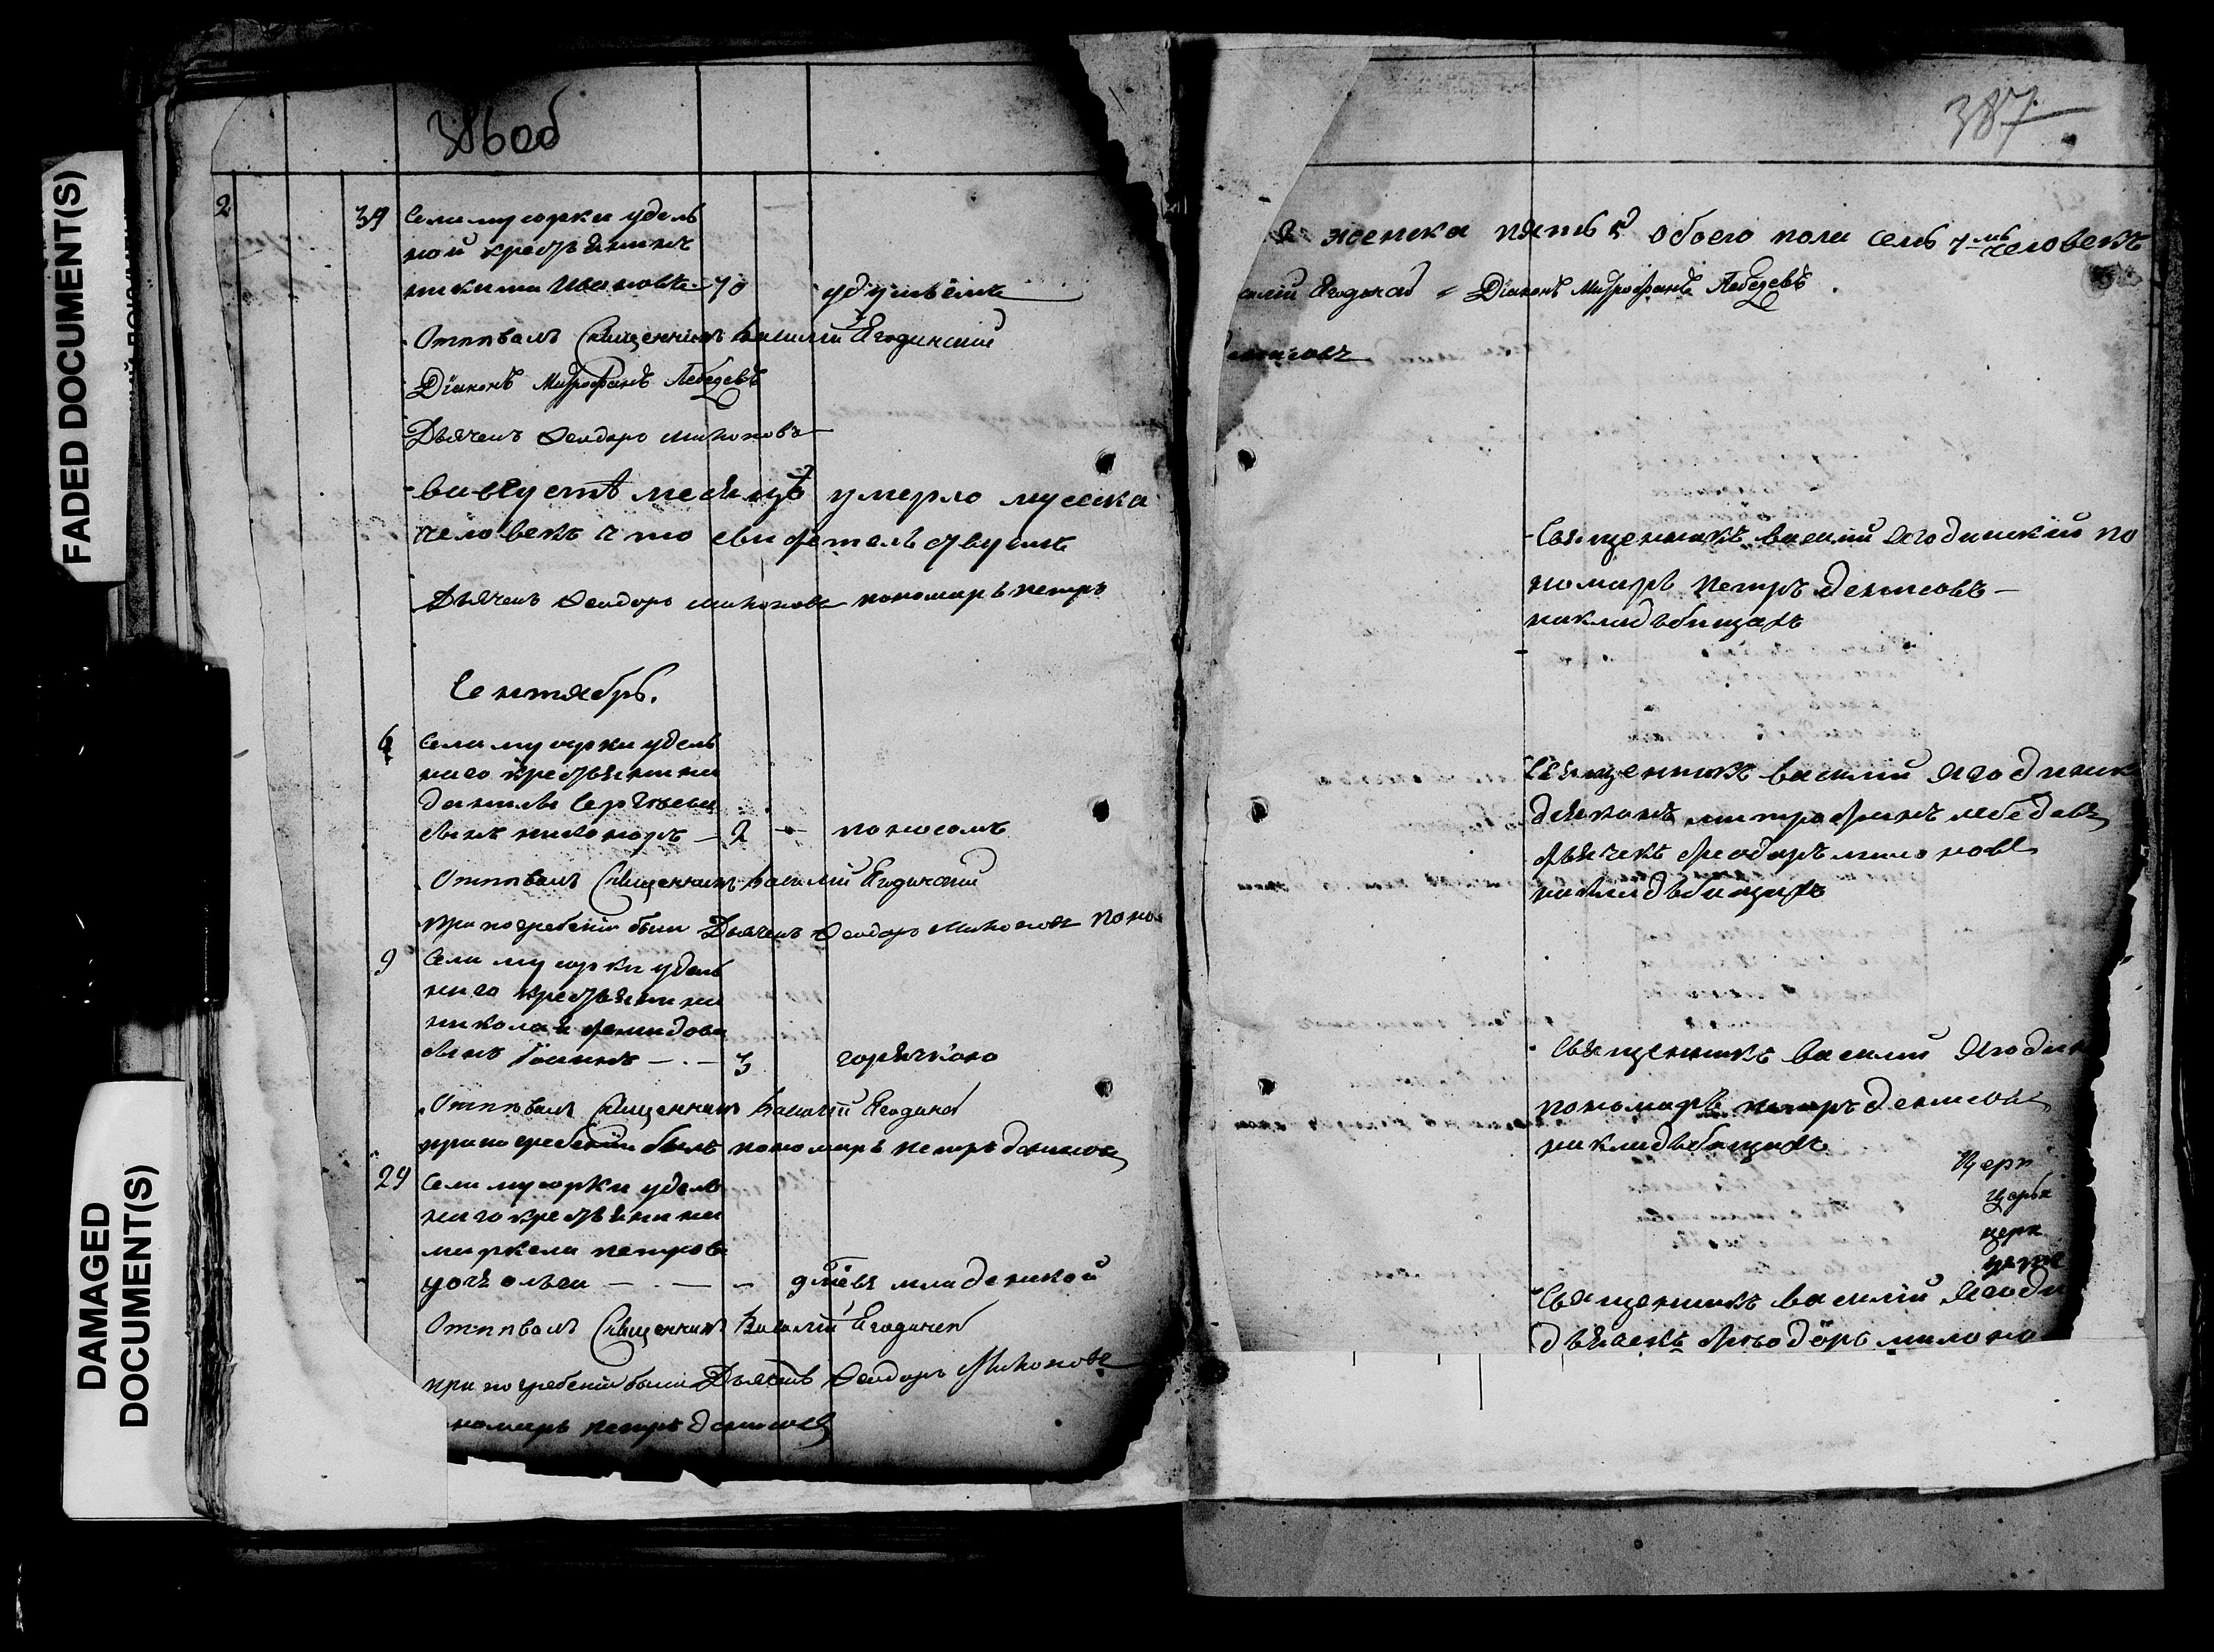 FADED DOCUMENT(S)
DAMAGED
DOCUMENT(S)
386 об
2
39 Села муорки удель
ной крестьянинъ
никита Ивановъ - 70 удушьемъ
Отпевалъ Священникъ Василий Ягодинский
Дiаконъ Митрофанъ Лебедевъ
Дьячекъ Феодоръ Милоновъ
въ августѣ месяцѣ умерло мужска
человекъ что свидетельствуемъ
Дьячекъ Феодоръ Милоновъ пономарь петръ
Сентябрь.
6 Села муорки удель
наго крестьянина
данилы Сергѣева
сынъ никаноръ - 2 - поносомъ
Отпевалъ Священникъ Василий Ягодинский
при погребенiи были Дьячекъ Феодоръ Милоновъ поно
9 Села муорки удель
наго крестьянина
николая демидова
сынъ Iоаннъ - - 3 горячкою
Отпевалъ Священникъ Василий Ягодинс
при погребенiи былъ пономарь петръ денисовъ
29 Села муорки удель
наго крестьянина
маркела петрова
дочь ольга - - - младенской
Отпевалъ Священникъ Василий Ягодинск
при погребенiи были Дьячекъ Феодоръ Милоновъ
номарь петръ денисовъ
387
2 женска пять 5 обоего пола семь 7-мь человекъ
силий Ягодинс Дiаконъ Митрофанъ Лебедевъ.
денисовъ
Священникъ василий Ягодинский по
номарь петръ денисовъ -
на кладьбищахъ
Священникъ василий Ягодинск
дьяконъ митрофанъ лебедевъ
дьячекъ феодоръ милоновъ
на кладьбищахъ
Священникъ василий Ягодин
пономарь петръ денисовъ
на кладьбищахъ
Церк
церк
церк
Священникъ василий Ягоди
дьячекъ феодоръ милоно